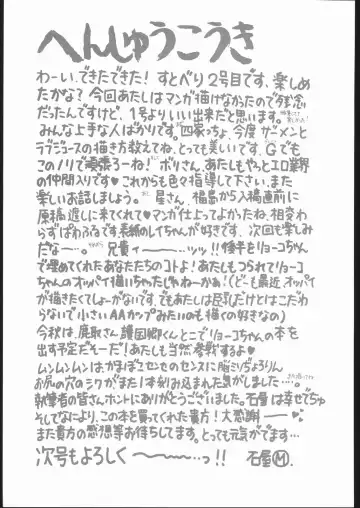 へんしゅうこうき
わーい、できたできた！すとべり２号目です、楽しめ
たかな？今回あたしはマンガ描けなかったので残念
だったんですけど、１号よりいい出来だと思います。
みんな上手な人ばかりです。四家っち、今度ザーメンと
ラブジュースの描き方教えてね、とっても美しいです、Ｇでも
このノリで頑張ろーね！ポリさん、あたしもやっとエロ業界
の仲間入りです♥これからも色々指導して下さい、また
楽しいお話しましょう。星さん、福島から入稿直前に
原稿渡しに来てくれて♥マンガ仕上ってよかったね、相変わ
らずぱわふるです、表紙のレイちゃんが好きです、次回も楽しみ
だなー。兄貴ィーーーッッ！！後半をリョーコちゃん
で埋めてくれたあなたたちのコトよ！あたしもつられてリョーコ
ちゃんのオッパイ描いちゃったじゃねーかぁ！（どーも最近オッパイ
が描きたくてしょーがないです、でもあたしは巨乳だけとはこだわ
らないで小さいＡＡカップみたいのも描くの好きなの）
今秋は鹿取さん、護国卿くんとこでリョーコちゃんの本を
出す予定だそーだ！あたしも当然参戦するよ♥
ムンムンムンはかまぼこセンセのセンスに脳ミソぢょろりん
お尻の穴のシワがまた１本刻み込まれた気がしました…。
執筆者の皆さんホントにありがとうございました。石屋は幸せでちゅ
そしてなにより、この本を買ってくれた貴方！大感謝ーー♥
また貴方の感想等お待ちしてます。とっても元気がでます…
次号もよろしく〜〜〜っ！！ 石屋Ⓜ.